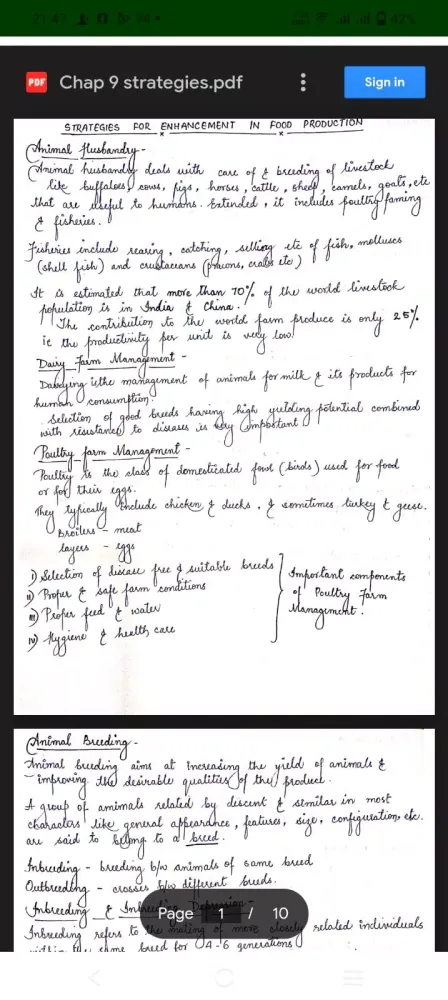 21:47
42%
PDF Chap 9 strategies.pdf
Sign in
STRATEGIES FOR ENHANCEMENT IN FOOD PRODUCTION
Animal Husbandry -
Animal husbandry deals with care of & breeding of livestock
like buffaloes, cows, pigs, horses, cattle, sheep, camels, goats, etc
that are useful to humans. Extended, it includes poultry faming
& fisheries.
Fisheries include rearing, catching, selling etc of fish, molluscs
(shell fish) and crustaceans (prawns, crabs etc)
It is estimated that more than 70% of the world livestock
population is in India & China.
The contribution to the world farm produce is only 25%
ie the productivity per unit is very low!
Dairy Farm Management -
Dairying is the management of animals for milk & its products for
human consumption.
Selection of good breeds having high yielding potential combined
with resistance to diseases is very important
Poultry farm Management -
Poultry is the class of domesticated fowl (birds) used for food
or for their eggs.
They typically include chicken & ducks, & sometimes turkey & geese.
Broilers - meat
layers - eggs
i) Selection of disease free & suitable breeds
ii) Proper & safe farm conditions
iii) Proper feed & water
iv) Hygiene & health care
Important components
of Poultry Farm
Management.
Animal Breeding -
Animal breeding aims at increasing the yield of animals &
improving the desirable qualities of the product.
A group of animals related by descent & similar in most
characters like general appearance, features, size, configuration, etc.
are said to belong to a breed.
Inbreeding - breeding b/w animals of same breed
Outbreeding - crosses b/w different breeds.
Inbreeding & Inbreeding Depression -
Page 1 / 10
Inbreeding refers to the mating of more closely related individuals
within the same breed for 4-6 generations